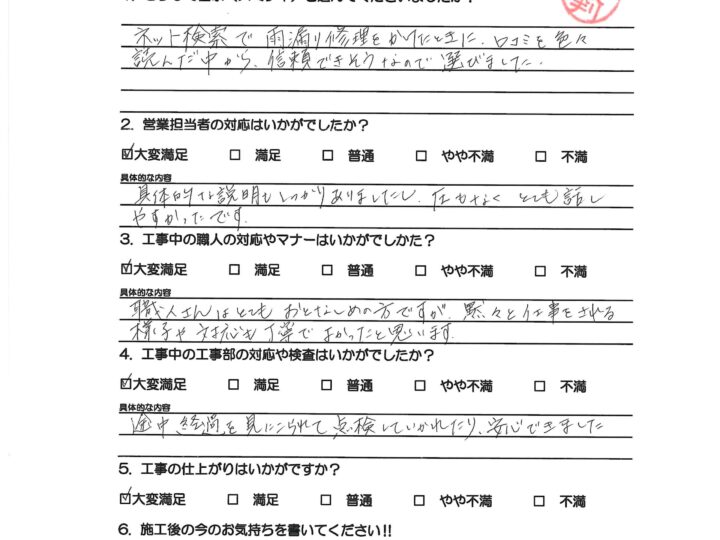 ネット検索で雨漏り修理をかけたときに、口コミを色々
読んだ中から、信頼できそうなので選びました.
2. 営業担当者の対応はいかがでしたか？
☑大変満足 □ 満足 □ 普通 □ やや不満 □ 不満
具体的な内容
具体的な説明もしっかりありましたし、圧もなく とても話し
やすかったです.
3. 工事中の職人の対応やマナーはいかがでしかた？
☑大変満足 □ 満足 □ 普通 □ やや不満 □ 不満
具体的な内容
職人さんはとても おとなしめの方ですが、黙々と仕事をされる
様子や 対応も丁寧で よかったと思います.
4. 工事中の工事部の対応や検査はいかがでしたか？
☑大変満足 □ 満足 □ 普通 □ やや不満 □ 不満
具体的な内容
途中 経過を見にこられて 点検していかれたり、安心できました
5. 工事の仕上がりはいかがですか？
☑大変満足 □ 満足 □ 普通 □ やや不満 □ 不満
6. 施工後の今のお気持ちを書いてください!!